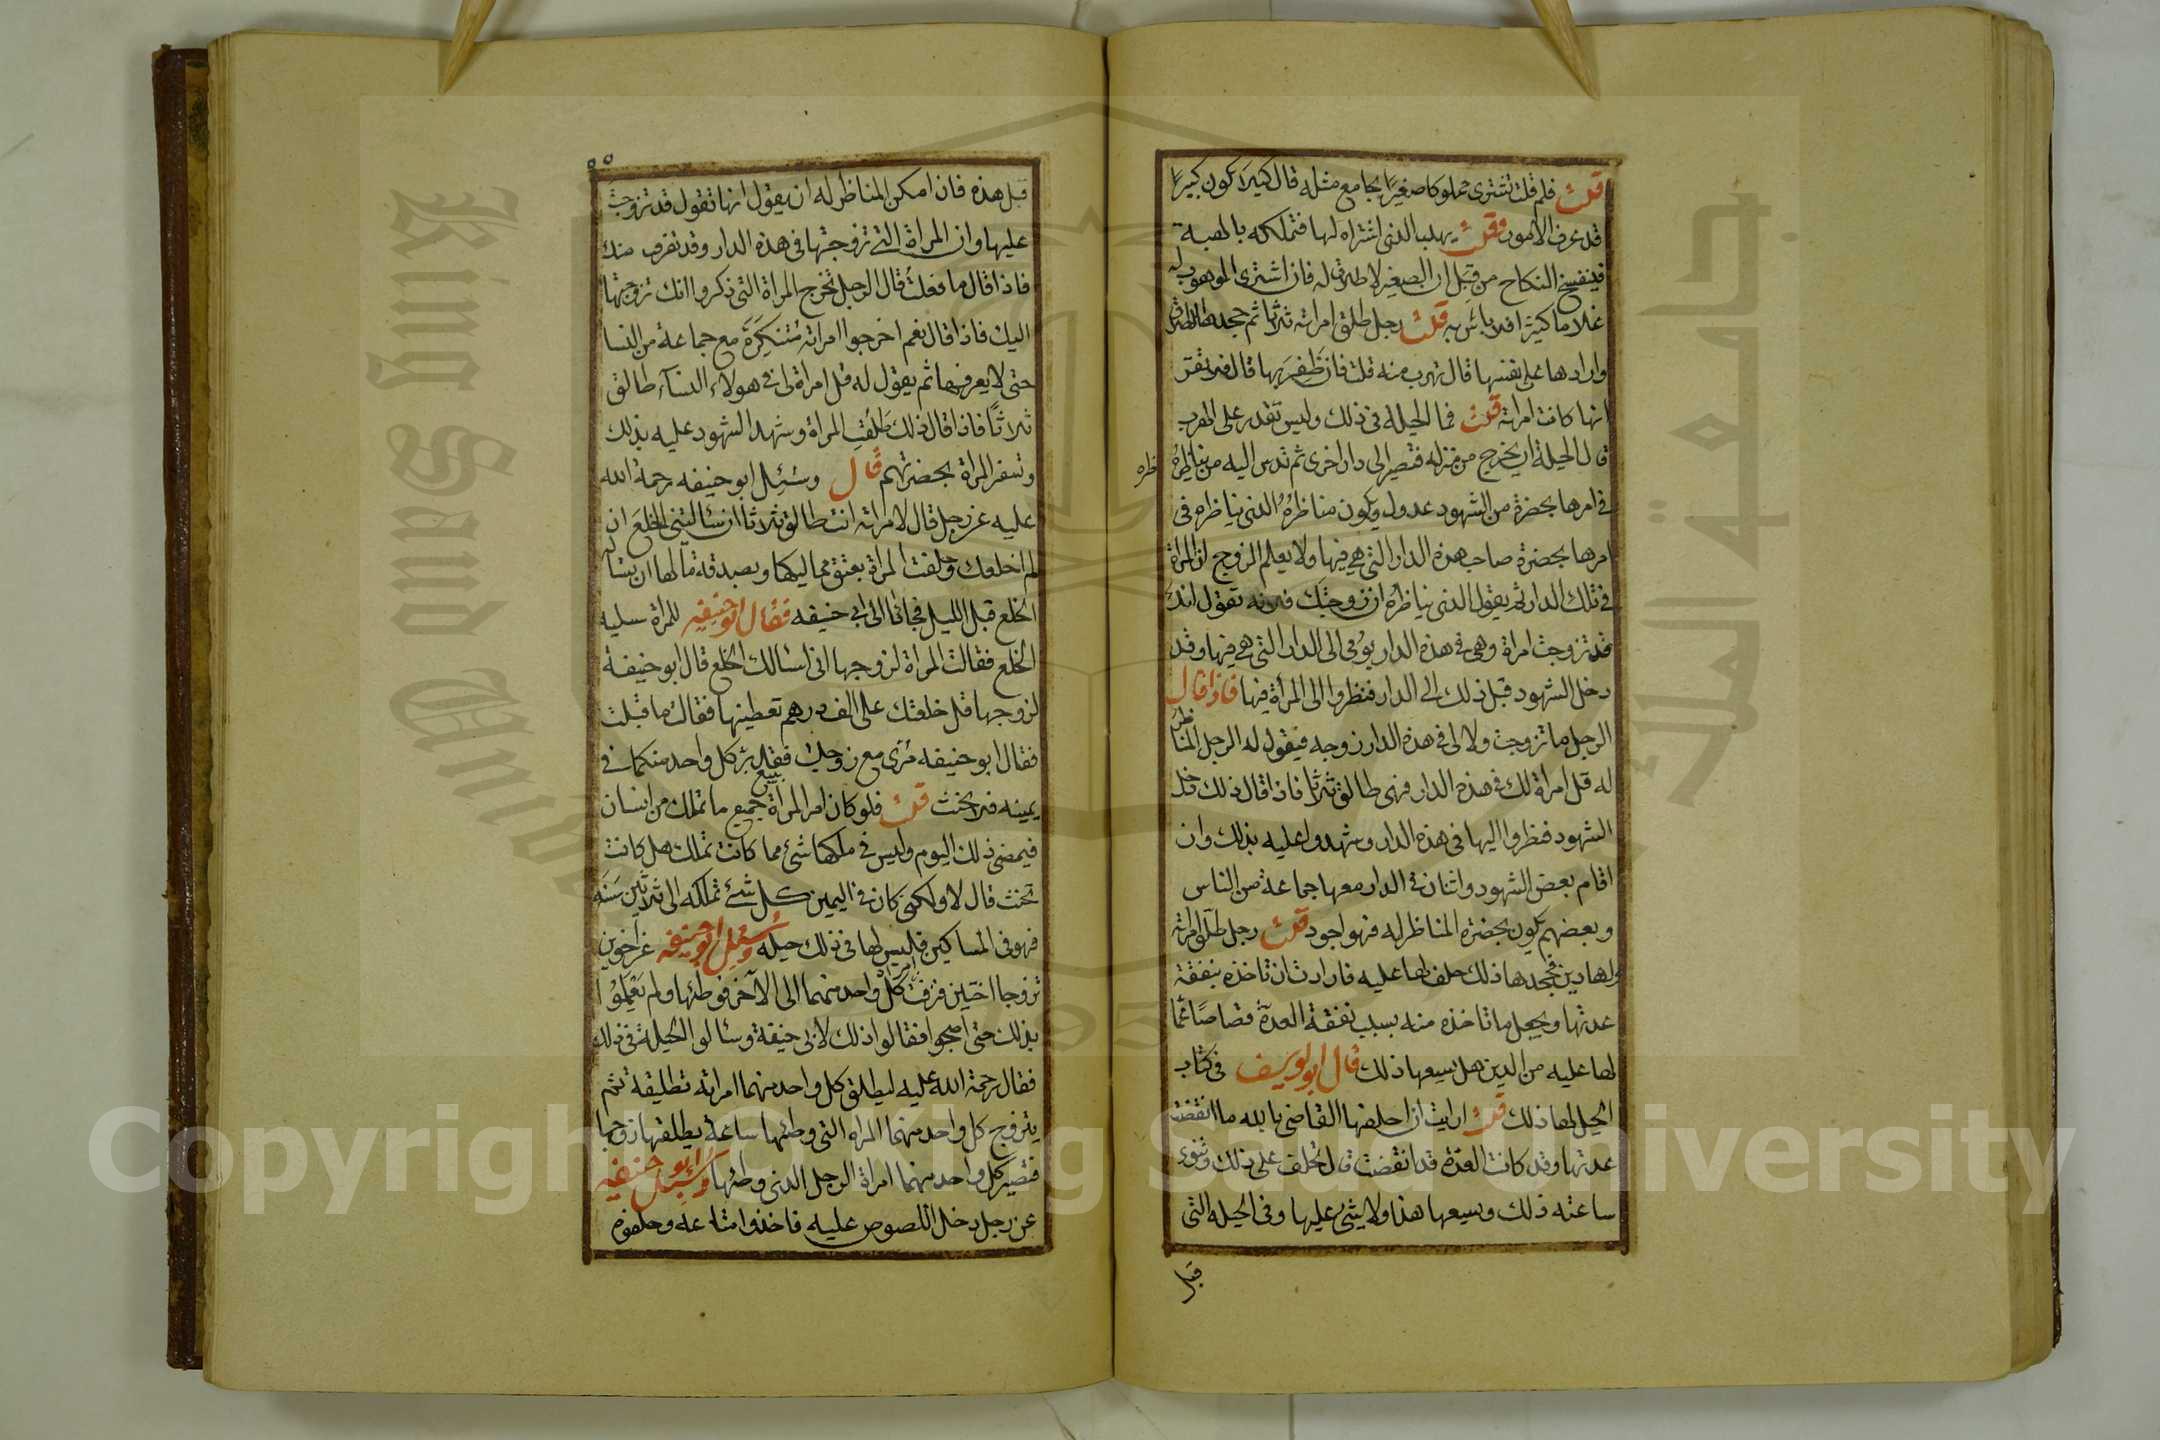 قلت فلم قلت تشترى مملوكا صغيرا يجامع مثله قال كيلا يكون كبيرا
قد عرف الامور فقلت يهب الذى اشتراه لها فتملكه بالهبة
فينفسخ النكاح من قبل ان الصغير لا طلاق له فان اشترى الموهوب له
غلاما كبيرا فلا باس به قلت رجل طلق امراته ثلاثا ثم جحدها الطلاق
وارادها على نفسها قال تهرب منه قلت فان ظفر بها قال فلا تقر
انها كانت امراته قلت فما الحيلة فى ذلك وليس تقدر على الهرب
قال الحيلة ان يخرج من منزله فتصير الى دار اخرى ثم تدس اليه من يناظره
فى امرها بحضرة من الشهود عدول ويكون مناظره الذى يناظره فى
امرها بحضرة صاحب هذه الدار التى هى فيها ولا يعلم الزوج ان المراة
فى تلك الدار ثم يقول الذى يناظره ان زوجتك فلانه تقول انك
قد تزوجت امراة وهى فى هذه الدار يومى الى الدار التى هى فيها وقد
دخل الشهود قبل ذلك الى الدار فنظروا الى المرأة فيها فاذا قال
الرجل ما تزوجت ولا لى فى هذه الدار زوجه فيقول له الرجل المناظر
له قل امراة لك فى هذه الدار فهى طالق ثلاثا فاذا قال ذلك دخل
الشهود فنظروا اليها فى هذه الدار وشهدوا عليه بذلك وان
اقام بعض الشهود واثنان فى الدار معها جماعة من الناس
وبعضهم يكون بحضرة المناظر له فهو اجود قلت رجل طلق امراته
ولها دين فجحدها ذلك حلف لها عليه فارادت ان تاخذه بنفقة
عدتها ويجعل ما تاخذه منه بسبب نفقة العدة قصاصا عما
لها عليه من الدين هل يسعها ذلك قال ابو يوسف فى كتاب
الحيل لها ذلك قلت ارايت ان احلفها القاضى بالله ما انقضت
عدتها وقد كانت العدة قد انقضت قال تحلف على ذلك وتنوى
ساعته ذلك ويسعها هذا ولا شئ عليها وفى الحيله التى
قبل
قبل هذه فان امكن المناظر له ان يقول انها تقول قد تزوجت
عليها وان المراة التى تزوجتها فى هذه الدار وقد تفرق منك
فاذا قال ما فعلت قال الرجل تخرج المراة التى ذكروا انك تزوجتها
اليك فاذا قال نعم اخرجوا امراته متنكرة مع جماعة من النسا
حتى لا يعرفها ثم يقول له قل امراة لى فى هولاء النسآء طالق
ثلاثا فاذا قال ذلك طلقت المراة وشهد الشهود عليه بذلك
وتسفر المراة بحضرتهم قال وسئل ابو حنيفه رحمة الله
عليه عن رجل قال لامراته انت طالق ثلاثا ان سالتينى الخلع ان
لم اخلعك وحلفت المراة بعتق مماليكها وبصدقة مالها ان تساله
الخلع قبل الليل فجاءا الى ابى حنيفه فقال ابو حنيفه للمراة سليه
الخلع فقالت المراة لزوجها انى اسالك الخلع قال ابو حنيفة
لزوجها قل خلعتك على الف درهم تعطينها فقالت ما قبلت
فقال ابو حنيفه مرى مع زوجك فقد بر كل واحد منكما فى
يمينه فلا يحنث قلت فلو كان امر المراة ببيع جميع ما تملك من انسان
فيمضى ذلك اليوم وليس فى ملكها شئ مما كانت تملك هل كانت
تحنث قال لا ولكن كان فى اليمين كل شئ تملكه الى ثلاثين سنة
فهو فى المساكين فليس لها فى ذلك حيله وسئل ابو حنيفه عن اخوين
تزوجا اختين فزفت امراة كل واحد منهما الى الآخر فوطئها ولم يعلموا
بذلك حتى اصبحوا فقالوا ذلك لابى حنيفة وسالوا الحيلة فى ذلك
فقال رحمة الله عليه ليطلق كل واحد منهما امراته تطليقة ثم
يتزوج كل واحد منهما المراه التى وطئها ساعة يطلقها زوجها
فتصير كل واحد منهما امراة الرجل الذى وطئها وسئل ابو حنيفه
عن رجل دخل اللصوص عليه فاخذوا متاعه وحلفوه
King Saud University
جامعة الملك سعود
1957
Copyright © King Saud University